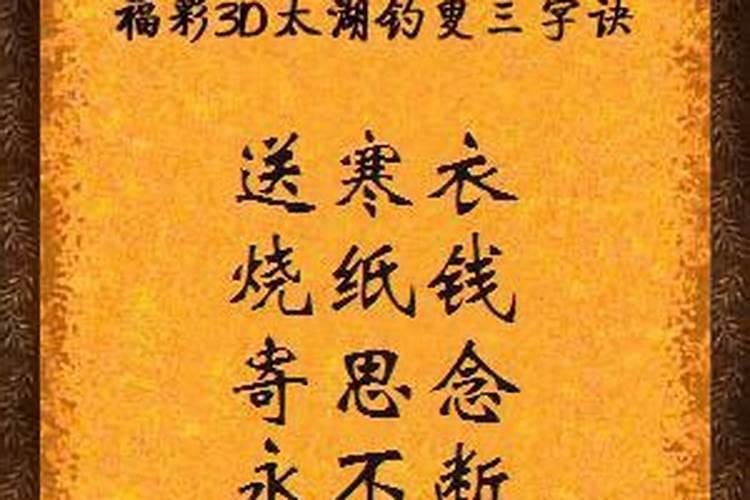 福彩3D太湖钓叟三字诀
送寒衣
烧纸钱
寄思念
永不断